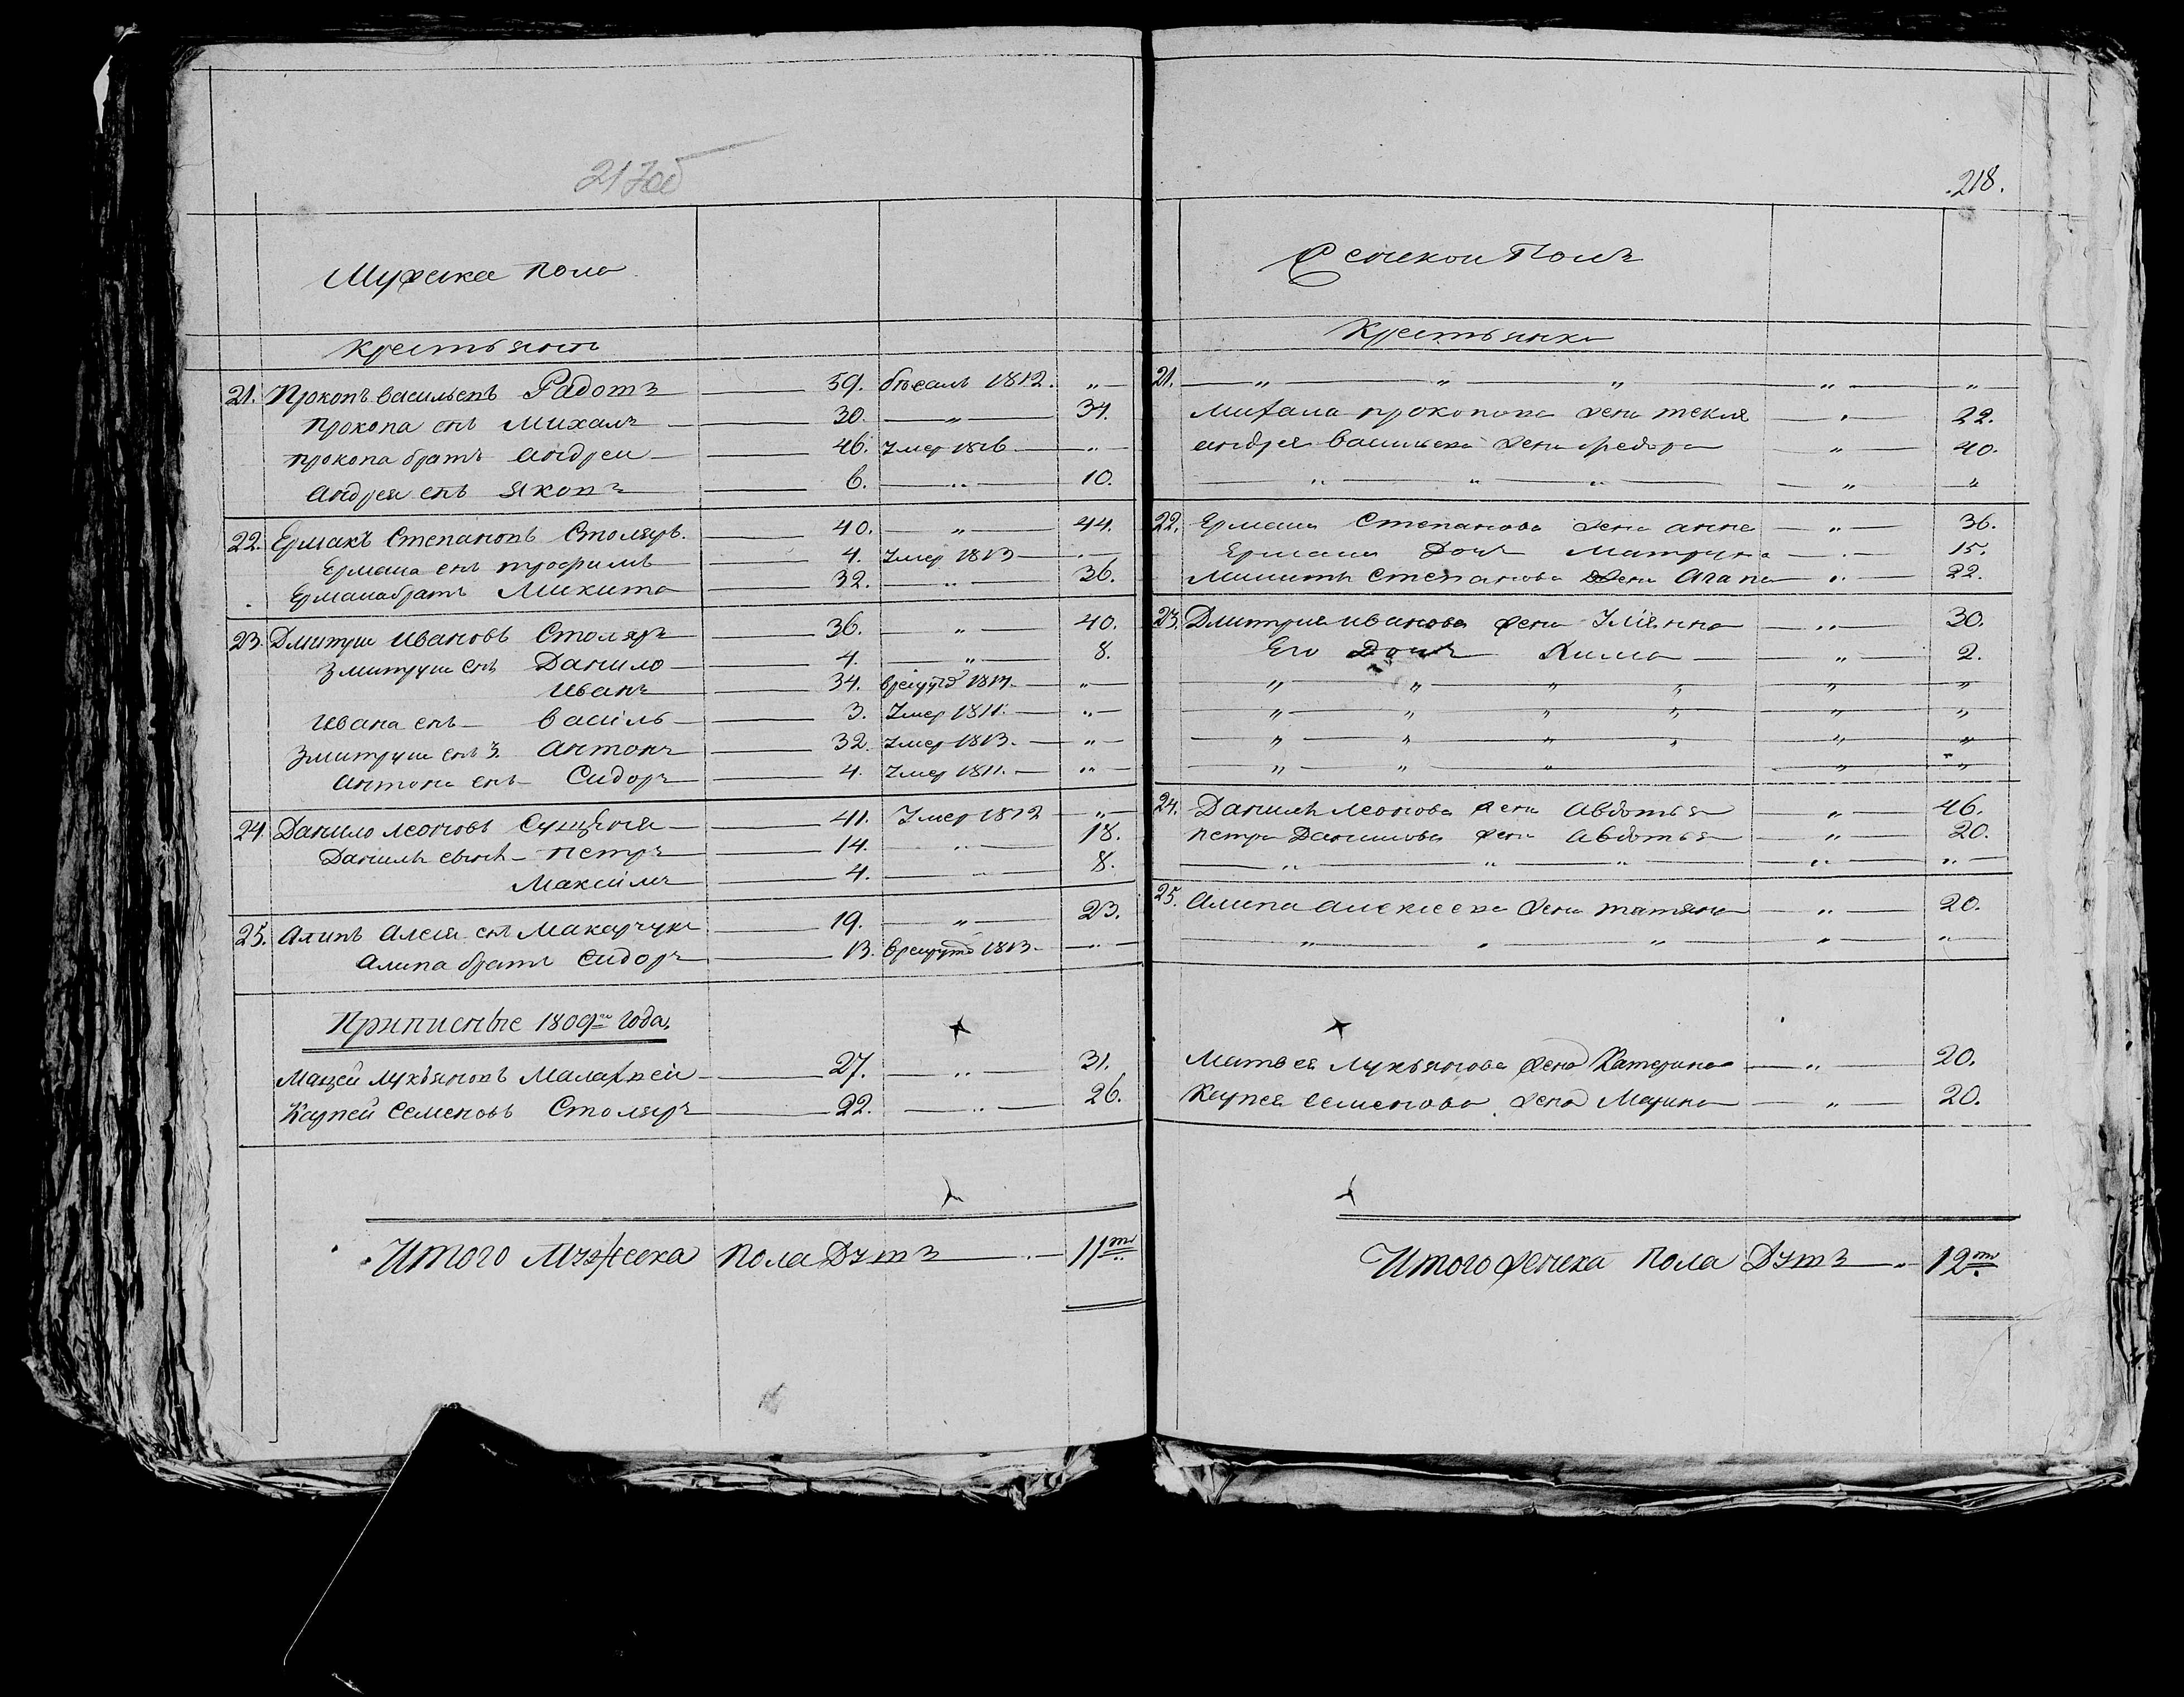 217об
Мужска пола
Крестьянъ
21. Прокопъ Васильевъ Работъ 59. бѣжалъ 1812. „
Прокопа снъ Михалъ 30. „ 34.
Прокопа братъ Андрей 46. Умер 1816 „
Андрея снъ Яковъ 6. „ 10.
22. Ермакъ Степановъ Столяръ. 40. „ 44.
Ермака снъ трофимъ 4. Умер 1813 „
Ермака братъ Микита 32. „ 36.
23. Дмитри Ивановъ Столяръ 36. „ 40.
Змитрыи снъ Данило 4. „ 8.
Иванъ 34. Врекруты 1814. „
Ивана снъ Василь 3. Умер 1811. „
Змитрыи снъ 3. Антонъ 32. Умер 1813. „
Антона снъ Сидоръ 4. Умер 1811. „
24. Данило леоновъ 41. Умер 1812 „
Данилы сыны Петръ 14. „ 18.
Максимъ 4. „ 8.
25. Алипъ Алексѣя снъ Макарчукъ 19. „ 23.
Алипа братъ Сидоръ 13. Врекруты 1813. „
Приписные 1809го года.
Мацей лукьяновъ Малахвей 27. „ 31.
Карпей Семеновъ Столяръ 22. „ 26.
Итого Мужеска пола Душъ 11ть
218.
Женскои Полъ
Крестьянки
21. „ „ „ „ „
Михала прокопова жена текля „ 22.
Андрея Васильева жена федора „ 40.
„ „ „ „ „
22. Ермака Степанова жена анна „ 36.
Ермака Дочь Матруна „ 15.
Микиты Степанова жена Агапа „ 22.
23. Дмитрия Иванова жена Улiянна „ 30.
Его Дочь Кима „ 2.
„ „ „ „ „ „
„ „ „ „ „ „
„ „ „ „ „ „
„ „ „ „ „
24. Данилы леонова жена Авдотья „ 46.
Петра Данилова жена Авдотья „ 20.
„ „ „ „ „
25. Алипа Алексеева жена татяна „ 20.
„ „ „ „ „
Матвея Лукьянова жена Катерина „ 20.
Карпея Семенова жена Марина „ 20.
Итого женска пола Душъ 12ть